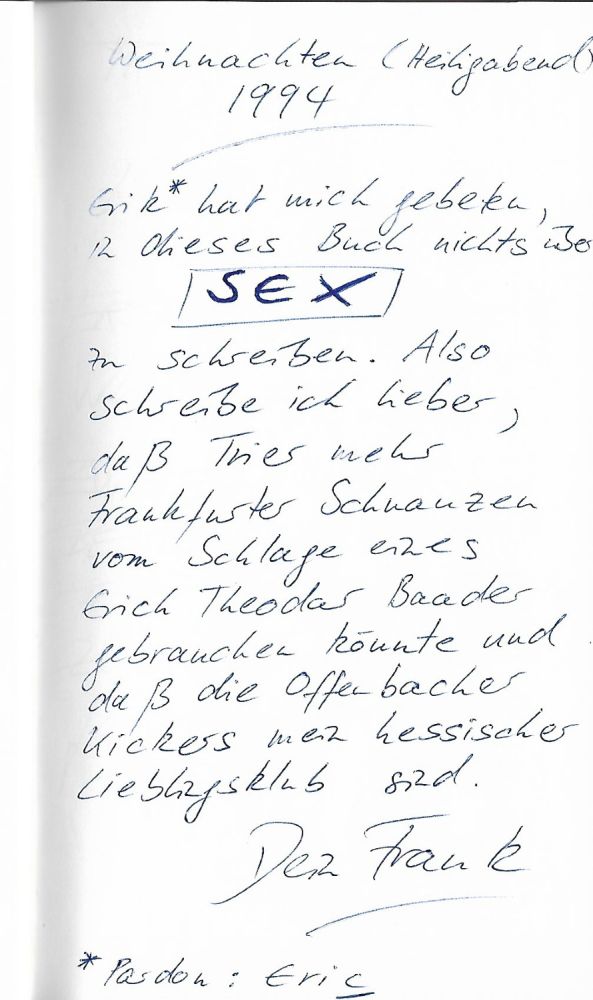 Weihnachten (Heiligabend)
1994
Erik* hat mich gebeten,
in dieses Buch nichts über
SEX
zu schreiben. Also
schreibe ich lieber,
daß Trier mehr
Frankfurter Schnauzen
vom Schlage eines
Erich Theodor Baader
gebrauchen könnte und
daß die Offenbacher
Kickers mein hessischer
Lieblingsklub sind.
Dein Frank
* Pardon: Eric